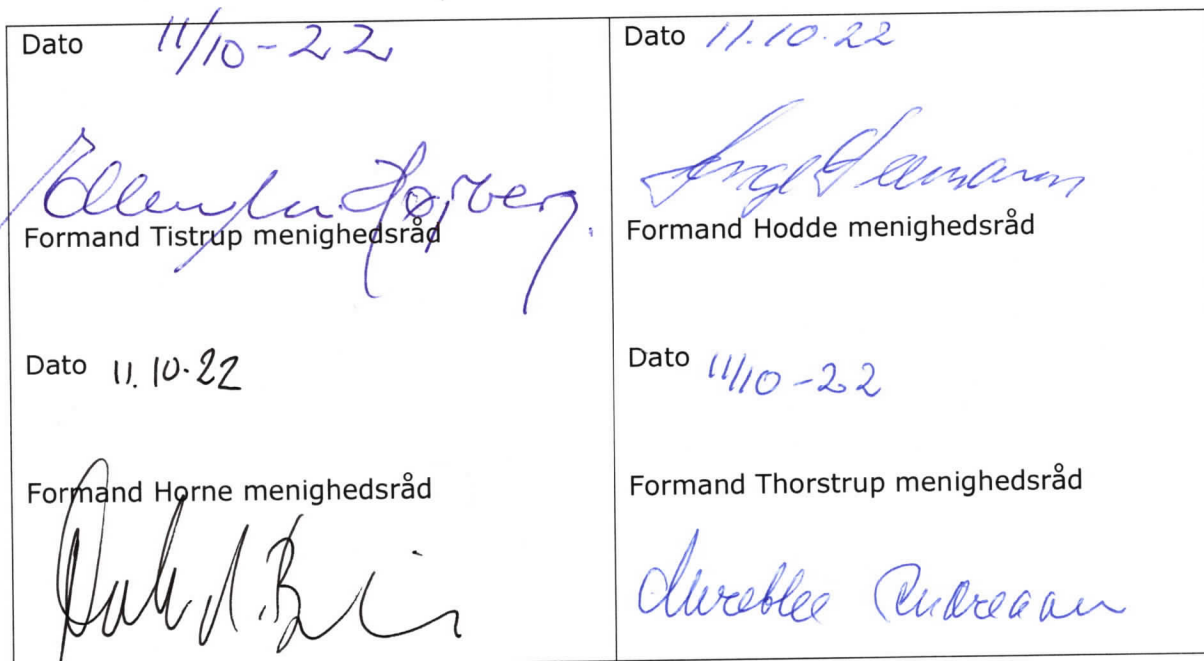 Dato 11/10-22
Højberg
Formand Tistrup menighedsråd
Dato 11.10.22
Formand Horne menighedsråd
Dato 11.10.22
Inge
Formand Hodde menighedsråd
Dato 11/10-22
Formand Thorstrup menighedsråd